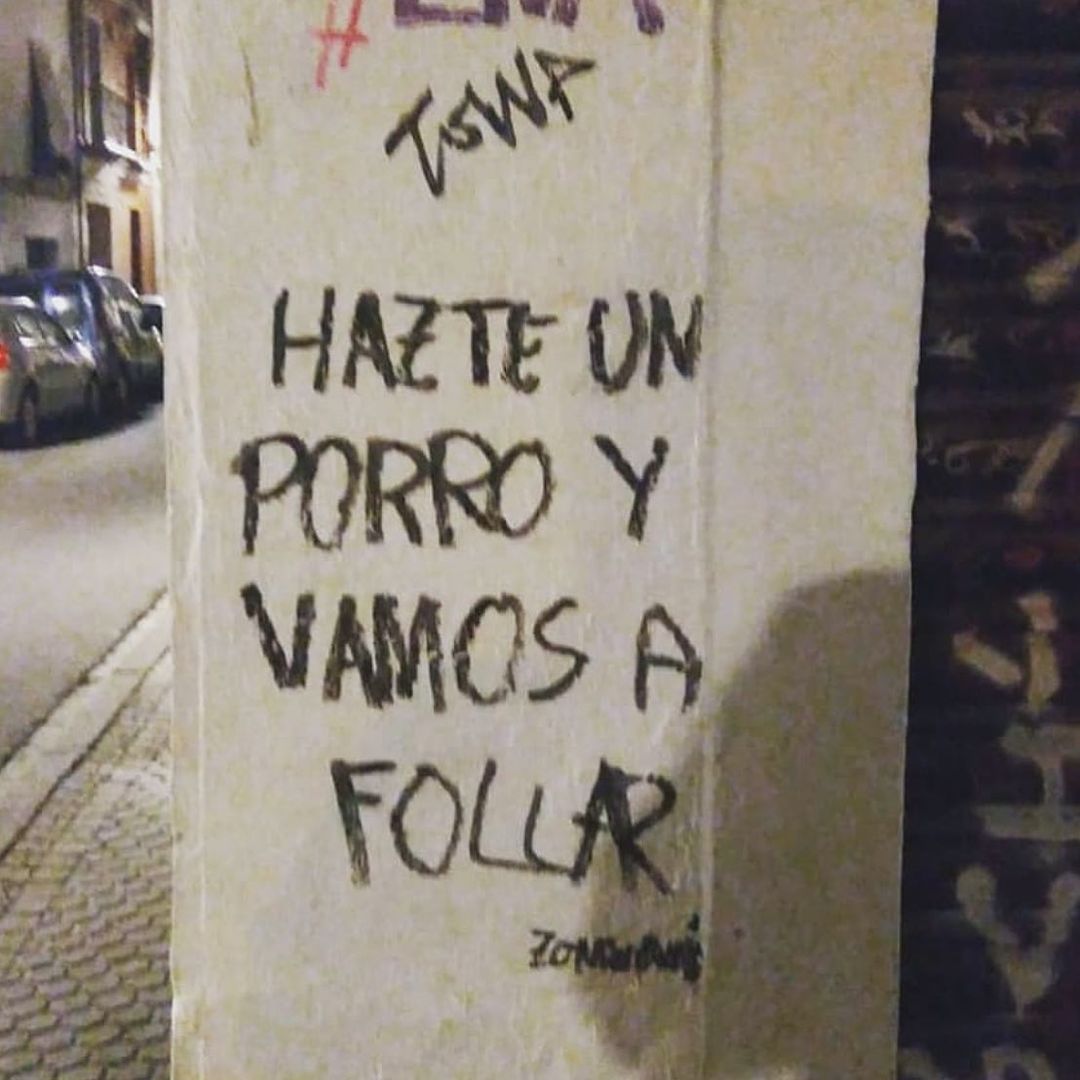 HAZTE UN
PORRO Y
VAMOS A
FOLLAR